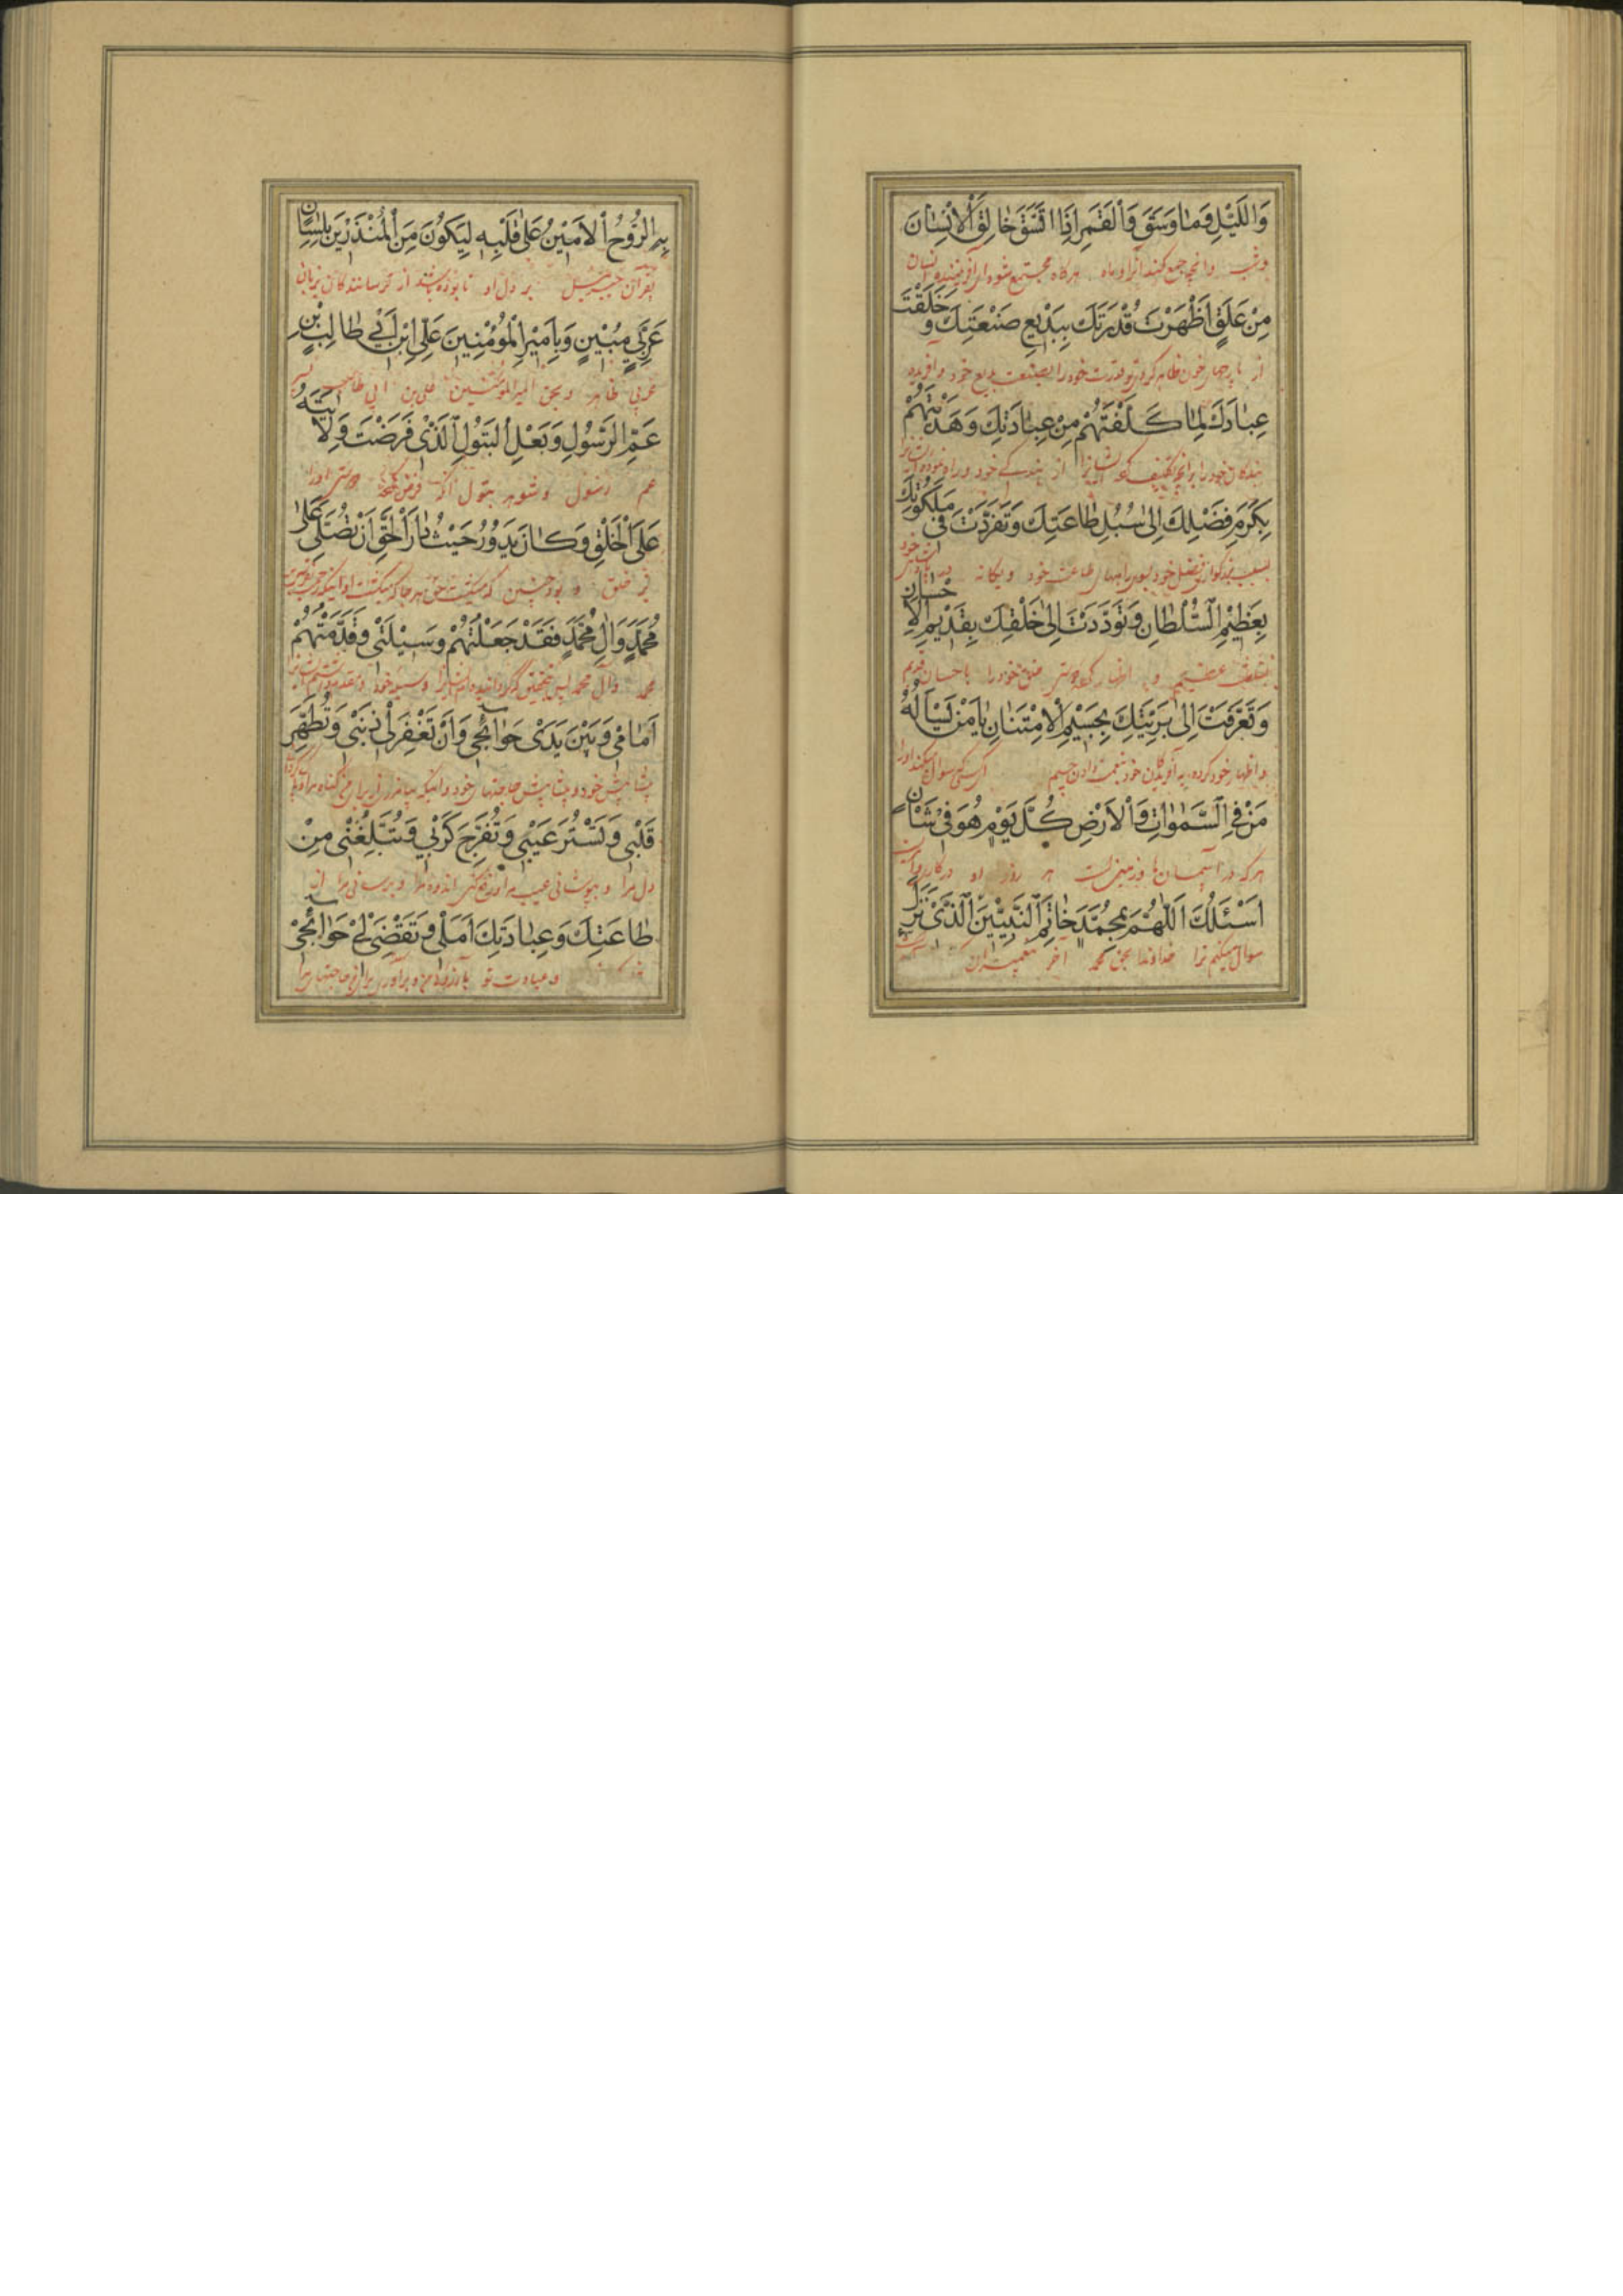 وَاللَّيْلِ وَمٰا وَسَقَ وَالْقَمَرِ اِذَا اتَّسَقَ خٰالِقَ الْاِنْسٰانَ
وشب وانچه جمع کند آنرا وماه هرگاه مجتمع شود ای آفریننده انسان
مِنْ عَلَقٍ اَظْهَرْتَ قُدْرَتَكَ بِبَدْيعِ صَنْعَتِكَ وَ خَلَقْتَ
از خون ظاهر کردی تو قدرت خود را بصنعت بدیع خود وآفریدی
عِبٰادَكَ لِمٰا كَلَّفْتَهُمْ مِنْ عِبٰادَتِكَ وَهَدَيْتَهُمْ
بندگان خود را برانچه تکلیف ایشانرا از بندگی خود وراه نموده
بِكَرَمِ فَضْلِكَ اِلىٰ سُبُلِ طٰاعَتِكَ وَتَفَرَّدْتَ فى مَلَكُوتِكَ
بسبب فضل خود بسوی راههای طاعت خود ویگانه
بِعَظْيمِ السُّلْطٰانِ وَتَوَدَّدْتَ اِلىٰ خَلْقِكَ بِقَدْيمِ الْاِحْسٰانِ
بسلطنت عظیم و اظهار دوستی خلق خود را باحسان قدیم
وَتَعَرَّفْتَ اِلىٰ بَرِيَّتِكَ بِجَسْيمِ الْاِمْتِنٰانِ يٰا مَنْ يَسْاَلُهُ
واظهار خود کرده به آفریدگان خود بنعمت دادن جسیم ای کسی که سوال میکند اورا
مَنْ فِى السَّمٰوٰاتِ وَالْاَرْضِ كُلَّ يَوْمٍ هُوَ فى شَاْنٍ
هرکه در آسمان ها وزمین است هر روز او درکار
اَسْئَلُكَ اَللّٰهُمَّ بِمُحَمَّدٍ خٰاتَمِ النَّبِيّينَ الَّذى نَزَلَ
سوال میکنم ترا خداوندا بحق محمد آخر پیغمبران
بِهِ الرُّوْحُ الْاَمينُ عَلىٰ قَلْبِهِ لِيَكُونَ مِنَ الْمُنْذِرينَ بِلِسٰانٍ
بقرآن جبرئیل بر دل او تا بوده باشد از ترسانندگان بزبانی
عَرَبِيٍّ مُبْينٍ وَبِاَمْيرِ الْمُؤْمِنينَ عَلِىّ ابْنِ اَبْي طٰالِبٍ بْنِ
عربی ظاهر وبحق امیرالمؤمنین علی بن ابی طالب پسر
عَمِّ الرَّسُولِ وَبَعْلِ الْبَتُولِ الَّذى فَرَضْتَ وَلٰايَتَهُ
عم رسول وشوهر بتول آنکه فرض کردی دوستی اورا
عَلَى الْخَلْقِ وَكٰانَ يَدُوْرُ حَيْثُ دٰارَ الْحَقُّ اَنْ تُصَلِّىَ عَلىٰ
بر خلق و بود چنین که میگشت حق هرجا که میگشت او اینکه رحمت
مُحَمَّدٍ وَاٰلِ مُحَمَّدٍ فَقَدْ جَعَلْتُهُمْ وَسيْلَتى وَقَدَّمْتُهُمْ
محمد وآل محمد پس بتحقیق که گردانیده ام ایشانرا وسیله خود
اَمٰامى وَبَيْنَ يَدَىْ حَوٰائِجى وَاَنْ تَغْفِرَ لى ذَنْبى وَتُطَهِّرَ
پیشاپیش خود وپیشاپیش حاجتهای خود واینکه بیامرزی از برای من گناه مرا
قَلْبى وَتَسْتُرَ عَيْبى وَتُفَرِّجَ كَرْبْي وَتُبَلِّغَنْى مِنْ
دل مرا وبپوشانی عیب مرا اندوه مرا وبرسانی مرا از
طٰاعَتِكَ وَعِبٰادَتِكَ اَمَلى وَتَقْضِىَ لْى حَوٰائِجى
وعبادت تو بآرزوی من وبرآوری برای من حاجتهای مرا